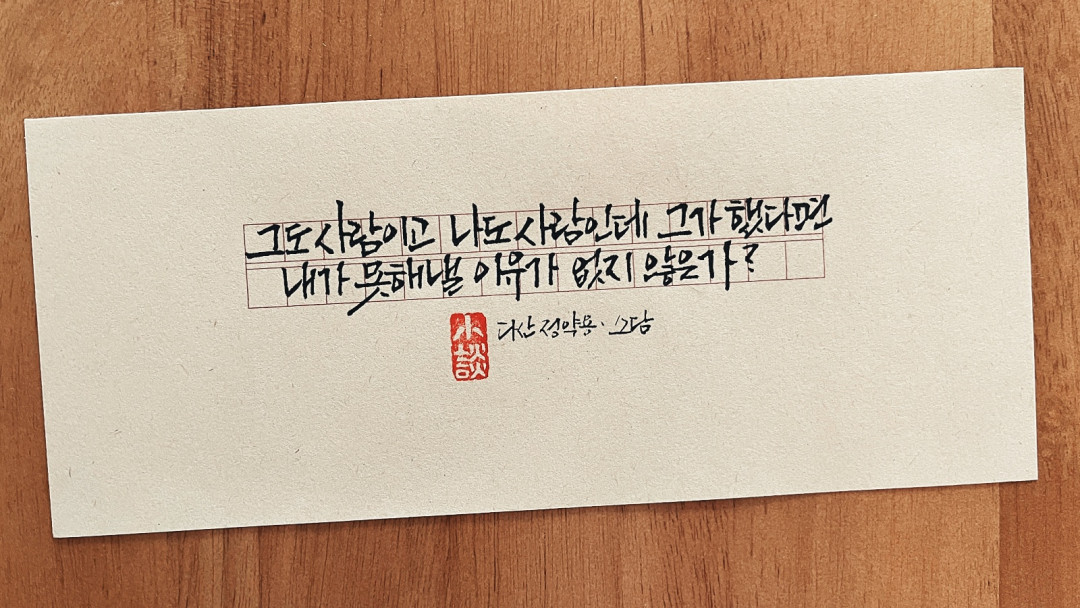 그도 사람이고 나도 사람인데 그가 했다면
내가 못해낼 이유가 없지 않은가?
小談
다산 정약용 · 소담